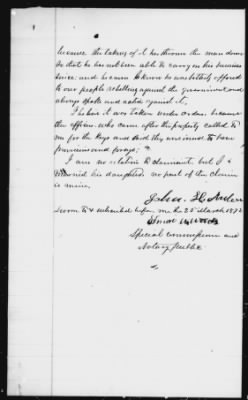 because the taking of it has thrown the man down
so that he has not been able to carry on his business
since and he own I know to was bitterly opposed
to our people rebelling against the government and
always spoke and acted against it,
I believe it was taken under orders, because
the officer who came after the property called to
me for the keys and said they wished to have
provisions and forage;
I am no relation to claimant, but I
married his daughter no part of the claim
is mine,
John H.
Sworn to & subscribed before me the 25 March 187
Special commissioner and
Notary Public